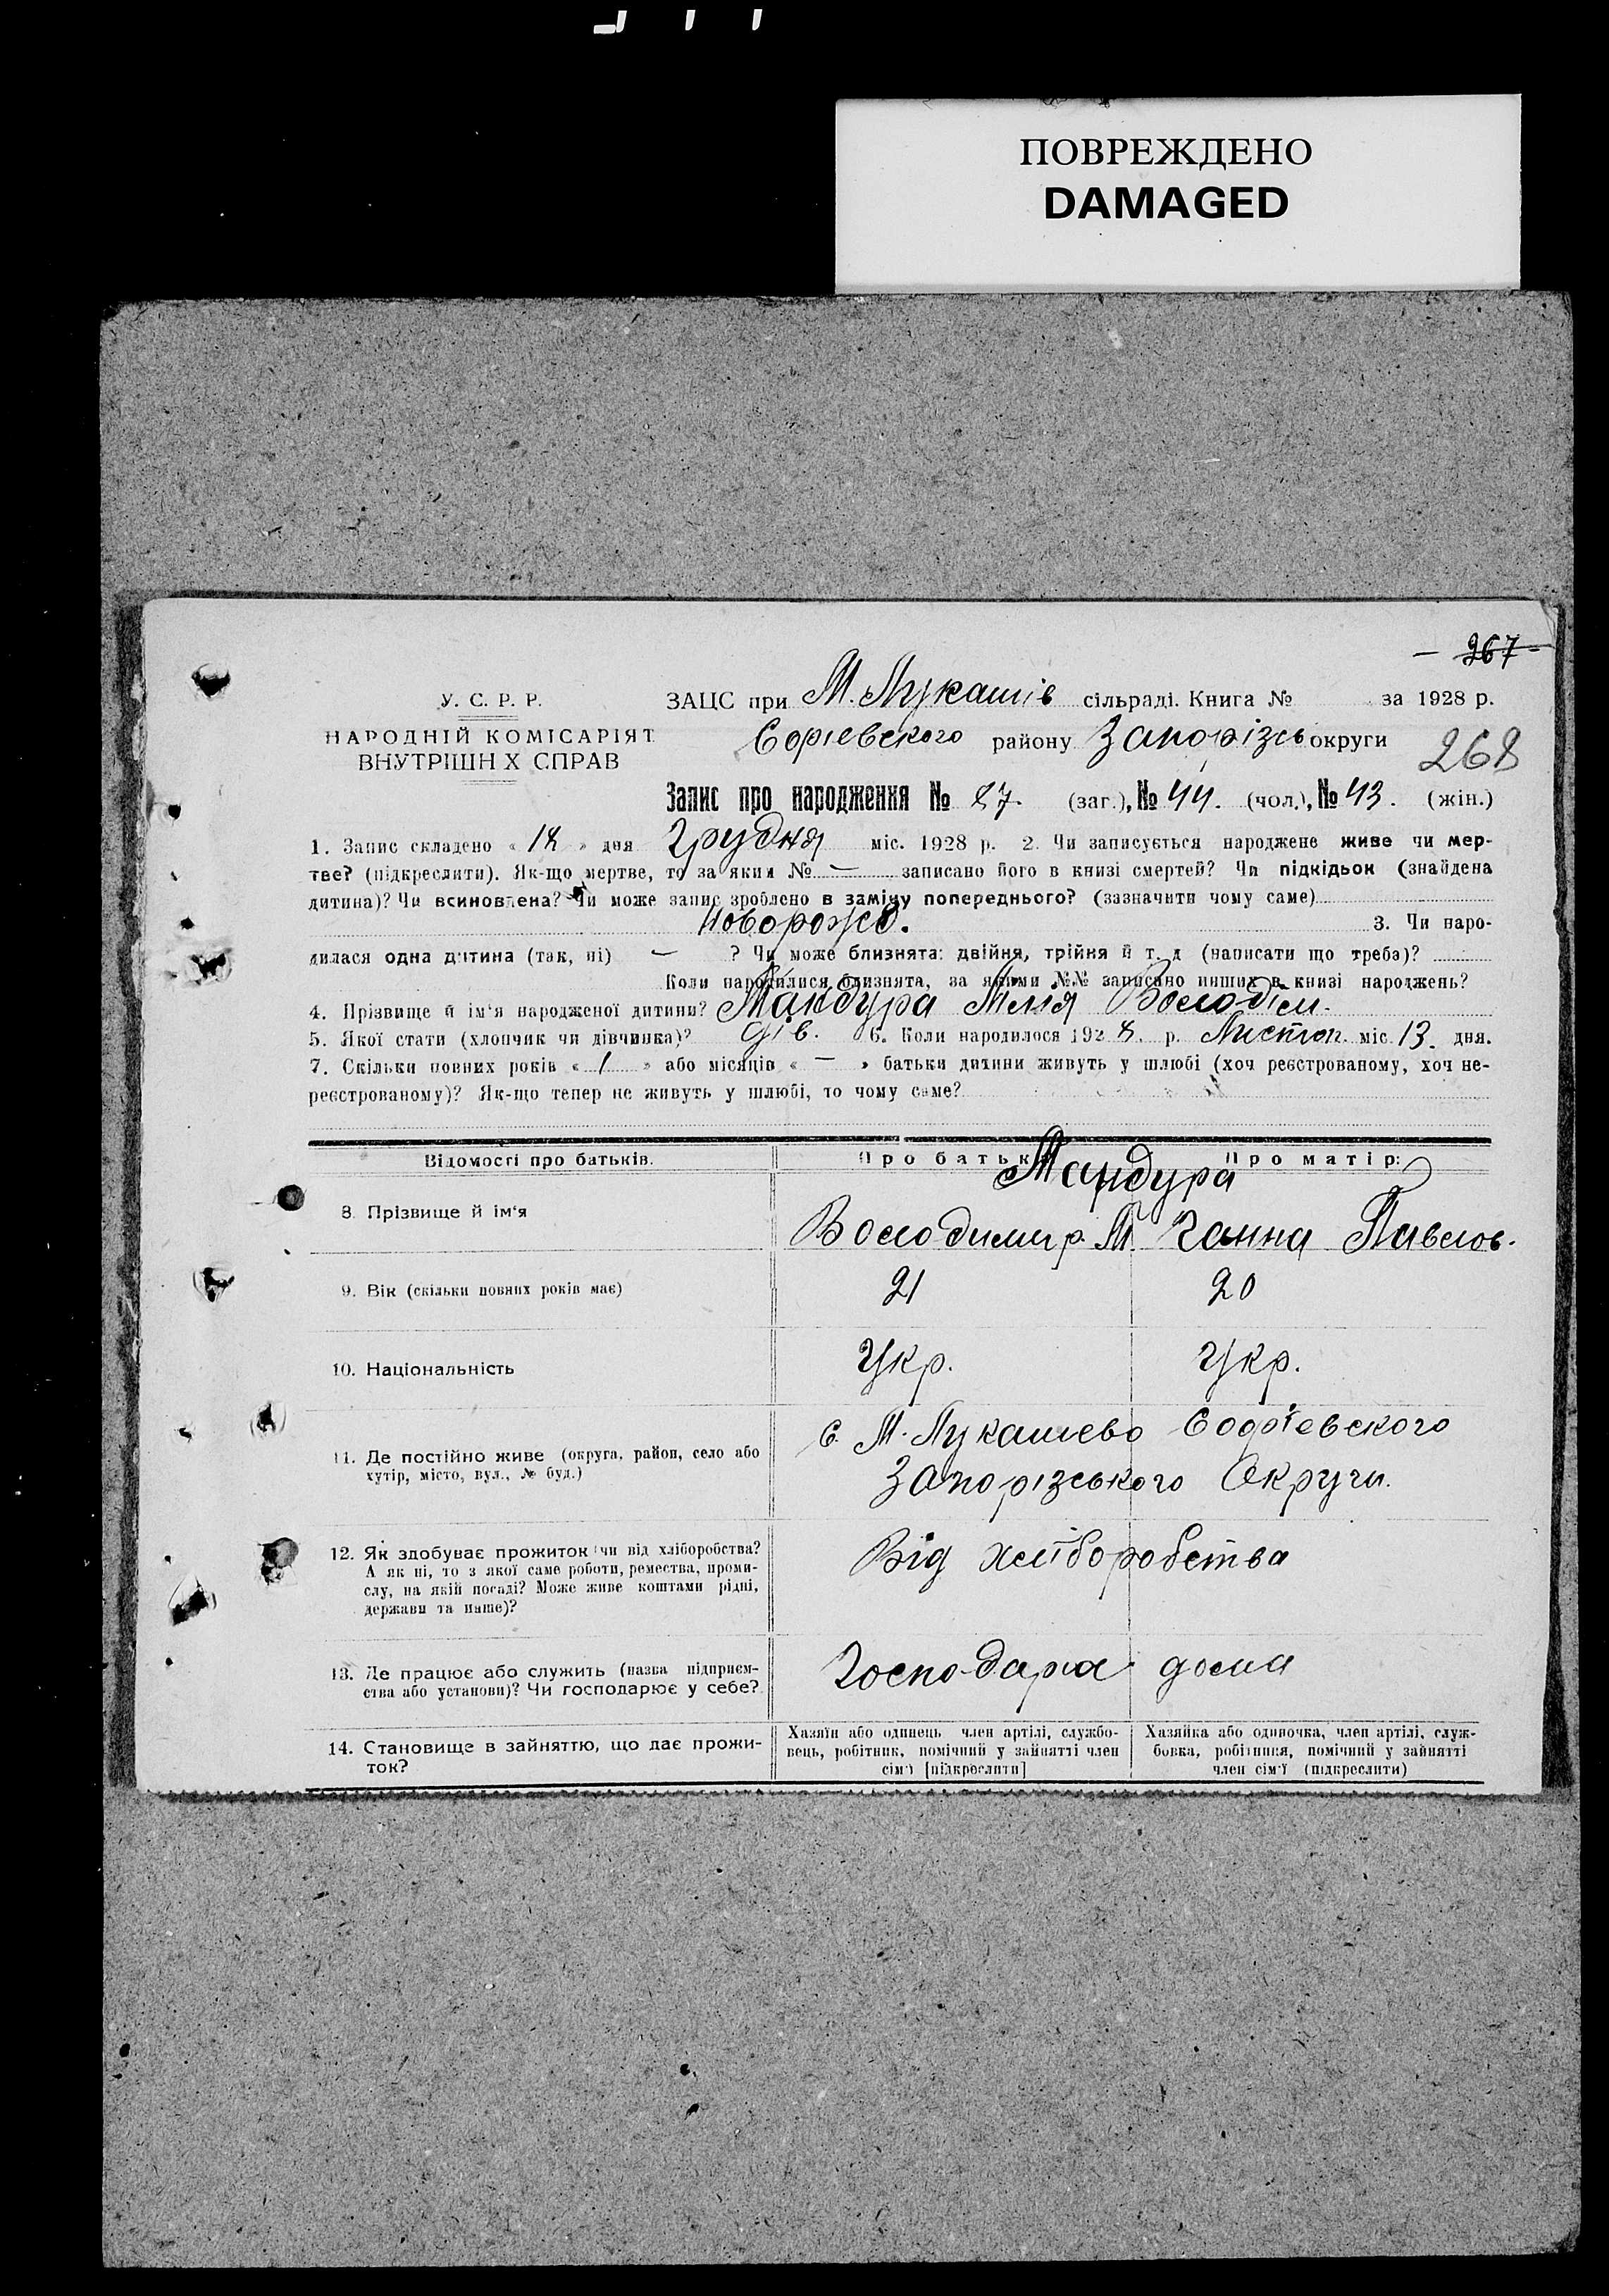 ПОВРЕЖДЕНО
DAMAGED
- 267 -
У. С. Р. Р.
НАРОДНІЙ КОМІСАРІЯТ
ВНУТРІШН Х СПРАВ
ЗАЦС при М. Лукашів сільраді. Книга № за 1928 р.
Софієвского району Запорізсь округи
268
Запис про народження № 87. (заг.), № 44. (чол.), № 43. (жін.)
1. Запис складено « 18 » дня Грудня міс. 1928 р. 2. Чи записується народжене живе чи мер-
тве? (підкреслити). Як-що мертве, то за яким № — записано його в книзі смертей? Чи підкідьок (знайдена
дитина)? Чи всиновлена? Чи може запис зроблено в заміну попереднього? (зазначити чому саме)
Новорожд. 3. Чи наро-
дилася одна дитина (так, ні) — ? Чи може близнята: двійня, трійня й т. д (написати що треба)?
Коли народилися близнята, за якими №№ записано инших в книзі народжень?
4. Прізвище й ім'я народженої дитини? Мандура Володім.
5. Якої стати (хлопчик чи дівчинка)? дів. 6. Коли народилося 1928. р. Листоп. міс. 13. дня.
7. Скільки повних років « 1 » або місяців « — » батьки дитини живуть у шлюбі (хоч реєстрованому, хоч не-
реєстрованому)? Як-що тепер не живуть у шлюбі, то чому саме?
Відомості про батьків. Про батьк Про матір:
Мандура
8. Прізвище й ім'я Володимир. М. Ганна Павлов.
9. Вік (скільки повних років має) 21 20
10. Національність Укр. Укр.
11. Де постійно живе (округа, район, село або
хутір, місто, вул., № буд.)
с. М. Лукашево Софієвского
Запорізського Округи.
12. Як здобуває прожиток (чи від хліборобства?
А як ні, то з якої саме роботи, ремества, проми-
слу, на якій посаді? Може живе коштами рідні,
держави та инше)?
Від хліборобства
13. Де працює або служить (назва підприєм-
ства або установи)? Чи господарює у себе?
Господарює дома
14. Становище в зайняттю, що дає прожи-
ток?
Хазяїн або одинець, член артілі, службо-
вець, робітник, помічний у зайнятті член
сім'ї [підкреслити]
Хазяйка або одиночка, член артілі, служ-
бовка, робітниця, помічний у зайнятті
член сім'ї (підкреслити)